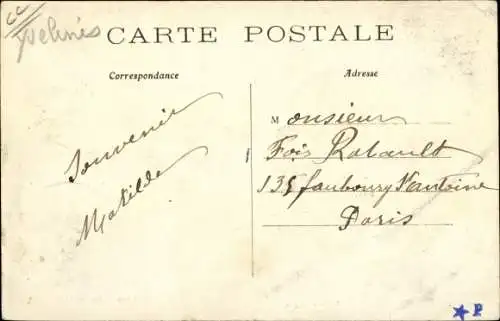 CARTE POSTALE
Correspondance
Adresse
Souvenir
Matilde
Monsieur
Fois Rabault
135 faubourg St antoine
Paris
P